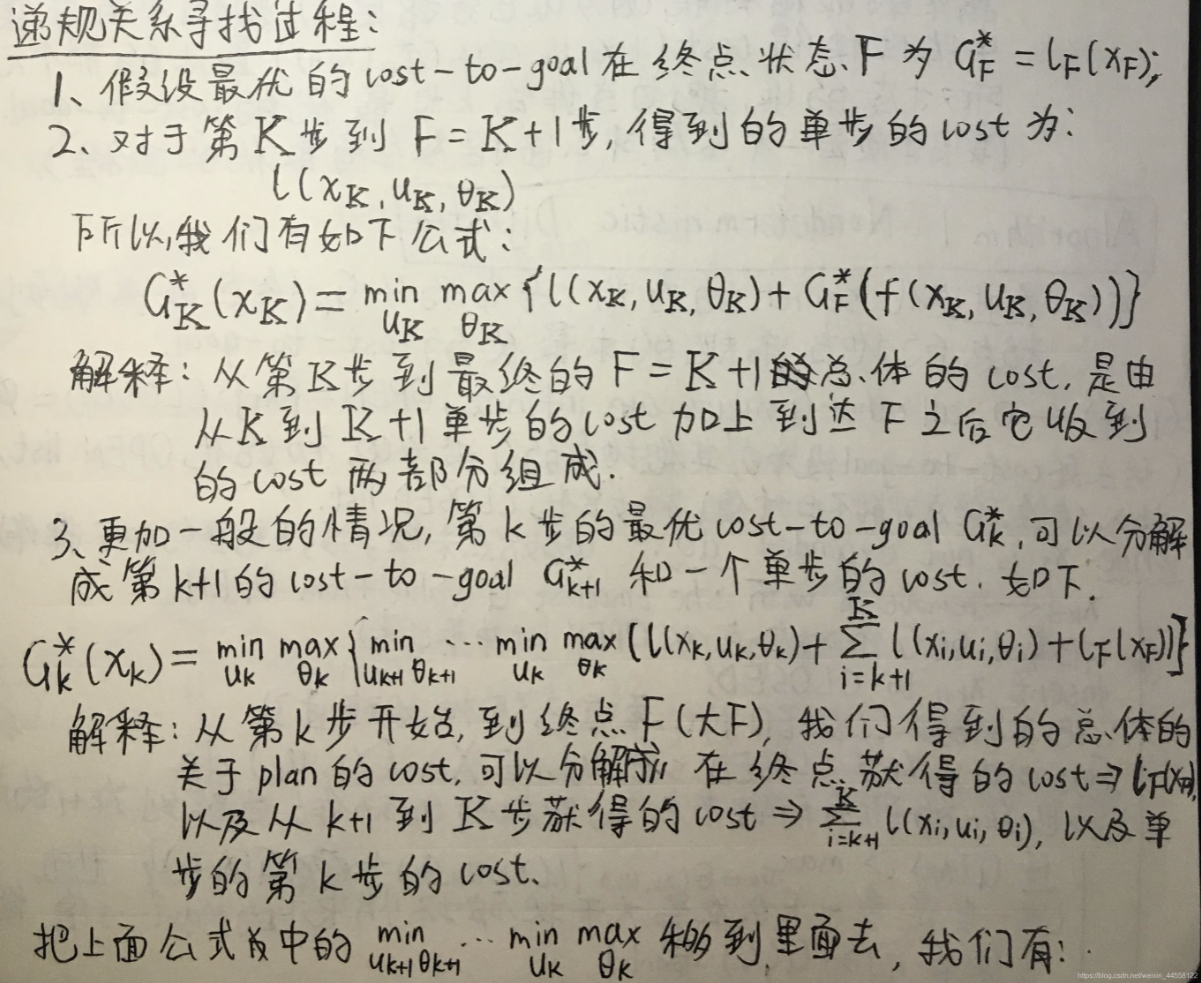 递规关系寻找过程:
1、假设最优的cost-to-goal在终点状态F为 G*_F = l_F(x_F);
2、对于第K步到F=K+1步,得到的单步的cost为:
l(x_K, u_K, θ_K)
所以,我们有如下公式:
G*_K(x_K) = min_{u_K} max_{θ_K} {l(x_K, u_K, θ_K) + G*_F(f(x_K, u_K, θ_K))}
解释:从第K步到最终的F=K+1的总体的cost,是由
从K到K+1单步的cost加上到达F之后它收到
的cost两部分组成.
3、更加一般的情况,第k步的最优cost-to-goal G*_k,可以分解
成第k+1的cost-to-goal G*_{k+1} 和一个单步的cost.如下.
G*_k(x_k) = min_{u_k} max_{θ_k} {min_{u_{k+1}} _{θ_{k+1}} ... min_{u_K} max_{θ_K} (l(x_k, u_k, θ_k) + ∑_{i=k+1}^{K} l(x_i, u_i, θ_i) + l_F(x_F))}
解释:从第k步开始,到终点F(大F),我们得到的总体的
关于plan的cost,可以分解成在终点获得的cost⇒l_F(x_F),
以及从k+1到K步获得的cost⇒∑_{i=k+1}^{K} l(x_i, u_i, θ_i),以及单
步的第k步的cost、
把上面公式中的 min_{u_{k+1}} _{θ_{k+1}} ... min_{u_K} max_{θ_K} 移到里面去,我们有:
https://blog.csdn.net/weixin_44558122